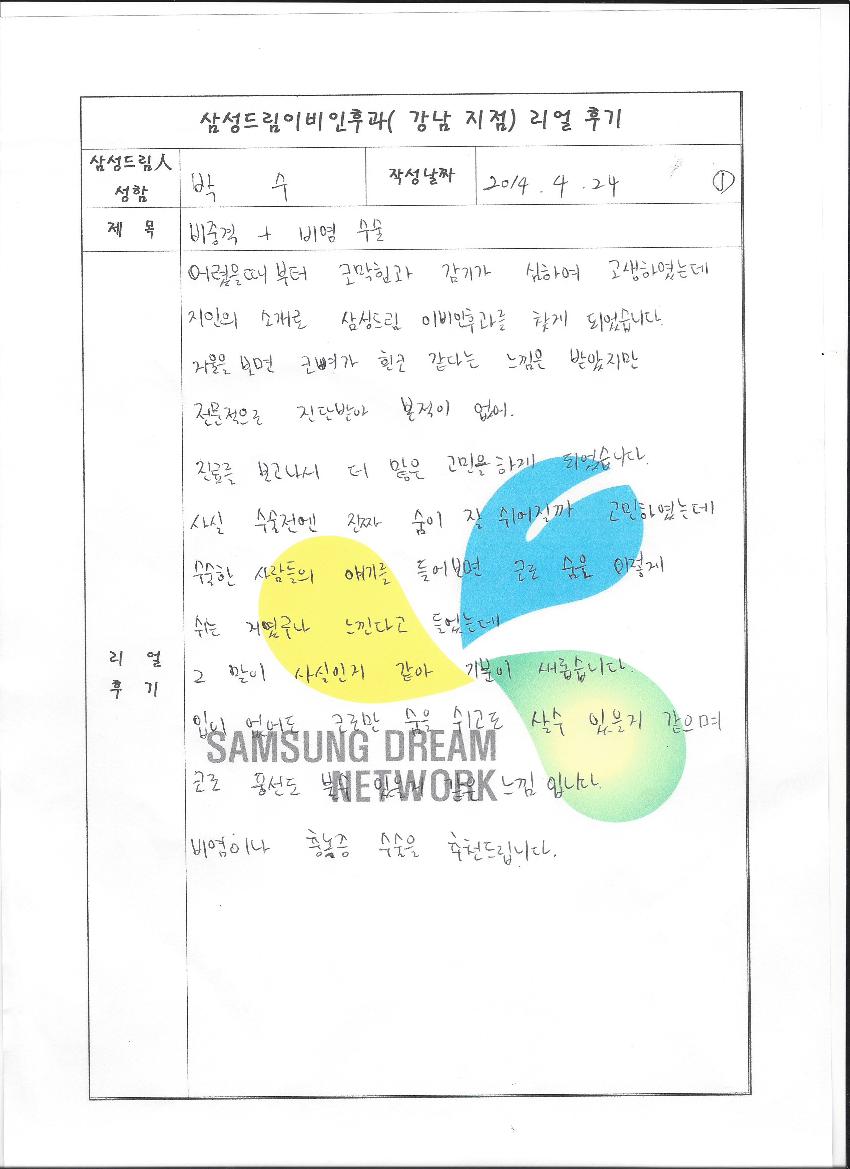 삼성드림이비인후과( 강남 지점) 리얼 후기
삼성드림人 성함
박 수
작성날짜
2014. 4. 24
①
제 목
비중격 + 비염 수술
리 얼 후 기
어렸을때부터 코막힘과 감기가 심하여 고생하였는데
지인의 소개로 삼성드림 이비인후과를 찾게 되었습니다.
거울을 보면 코뼈가 휜코 같다는 느낌은 받았지만
전문적으로 진단받아 본적이 없어.
진료를 보고나서 더 많은 고민을 하게 되었습니다.
사실 수술전엔 진짜 숨이 잘 쉬어질까 고민하였는데
수술한 사람들의 얘기를 들어보면 코로 숨을 이렇게
쉬는 거였구나 느낀다고 들었는데
그 말이 사실인거 같아 기분이 새롭습니다.
입이 없어도 코로만 숨을 쉬고도 살수 있을거 같으며
코로 풍선도 불수 있을거 같은 느낌 입니다.
비염이나 축농증 수술을 추천드립니다.
SAMSUNG DREAM
NETWORK